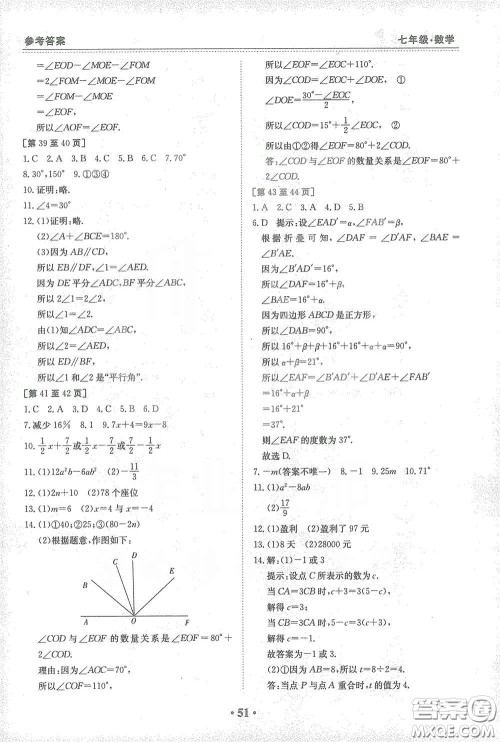 参考答案
七年级·数学
=∠EOD-∠MOE-∠FOM
=2∠FOM-∠MOE-∠FOM
=∠FOM-∠MOE
=∠EOF.
所以∠AOF=∠EOF.
[第 39 至 40 页]
1.C 2.A 3.B 4.C 5.B 6.C 7.70°
8.30°,150° 9.①③④
10.证明:略.
11.∠4=30°
12.(1)证明:略.
(2)∠A+∠BCE=180°.
(3)因为 AB∥CD,
所以 EB∥DF,∠1=∠AED.
因为 DE 平分∠ADC,BF 平分∠ABC,
所以 2∠1=2∠2.
所以∠1=∠2.
因为(1)知∠ADC=∠ABC,
所以∠2=∠AED.
所以 ED∥BF.
所以∠1和∠2是“平行角”.
[第 41 至 42 页]
1.C 2.D 3.A 4.A 5.B 6.D
7.减少 16% 8.1 9.7x+4=9x-8
10.1/2x+7/2或1/2x-7/2或-1/2x+7/2
11.(1)12a²b-6ab² (2)-11/3
12.(1)2n+10 (2)78 个座位
13.(1)x=4 (2)x=-9
14.(1)①40;②25;③(80-2n)
(2)根据题意,作图如下:
C D
B E
A O F
∠COD 与∠EOF 的数量关系是∠EOF=80°+
2∠COD.
理由:因为∠AOC=70°,
所以∠COF=110°.
所以∠EOF=∠EOC+110°.
因为∠EOC+∠COD=∠DOE, ①
∠DOE=(30°-∠EOC)/2,
所以∠COD+1/2∠EOF=70°. ②
所以由①②得∠EOF=80°+2∠COD.
答:∠COD 与∠EOF 的数量关系是∠EOF=80°+
2∠COD.
[第 43 至 44 页]
1.A 2.C 3.D 4.A 5.B
6.D 提示:设∠EAD'=α,∠FAB'=β,
根据折叠可知,∠DAF=∠D'AF,∠BAE=
∠B'AE.
因为∠B'AD'=16°,
所以∠DAF=16°+β,
∠BAE=16°+α.
因为四边形 ABCD 是正方形,
所以∠DAB=90°.
所以 16°+β+β+16°+16°+α+α=90°.
所以 α+β=21°.
所以∠EAF=∠B'AD'+∠D'AE+∠FAB'
=16°+α+β
=16°+21°
=37°.
则∠EAF 的度数为 37°.
故选 D.
7.-m(答案不唯一) 8.-1 9.25m 10.71°
11.(1)a²-8ab
(2)17/9
12.(1)盈利 (2)盈利了 97 元
13.(1)8 天 (2)28000 元
14.解:(1)-1 或 3
提示:设点 C 所表示的数为 c.
当 CA=3CB 时,c+3=3(5-c),
解得 c=3;
当 CB=3CA 时,5-c=3(c+3),
解得 c=-1.
故答案为-1 或 3.
(2)①因为 AB=8,所以 t=8÷2=4.
答:当点 P 与点 A 重合时,t 的值为 4.
·51·
答案圈
MXQE.COM